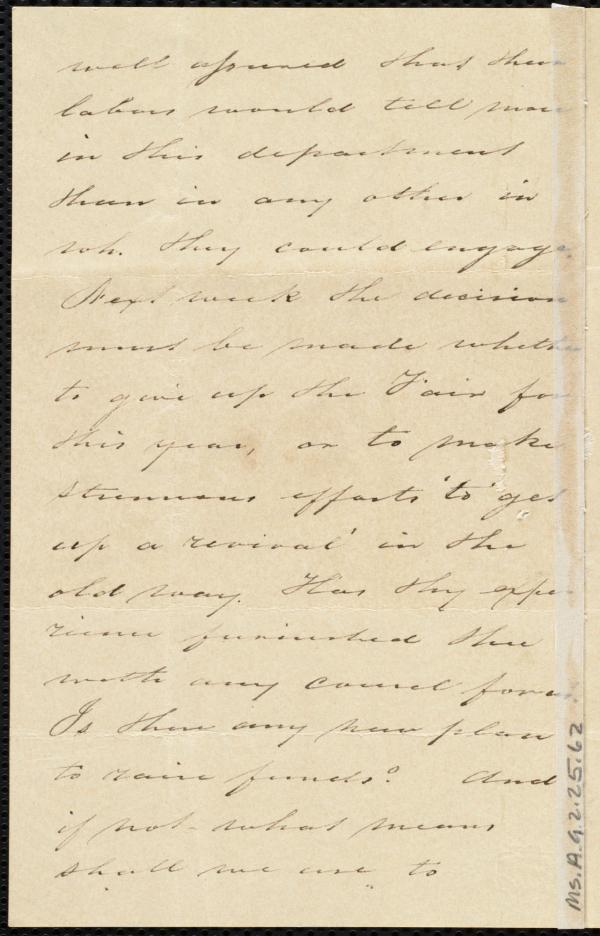 well assured that their
labors would tell more
in this department
than in any other in
wh. they could engage.
Next week the decision
must be made whether
to give up the Fair for
this year, or to make
strenuous efforts 'to get
up a revival' in the
old way. Has thy expe
rience furnished thee
with any counsel for us
Is there any new plan
to raise funds? And
if not - what means
shall we use to
Ms.A.9.2.25.62